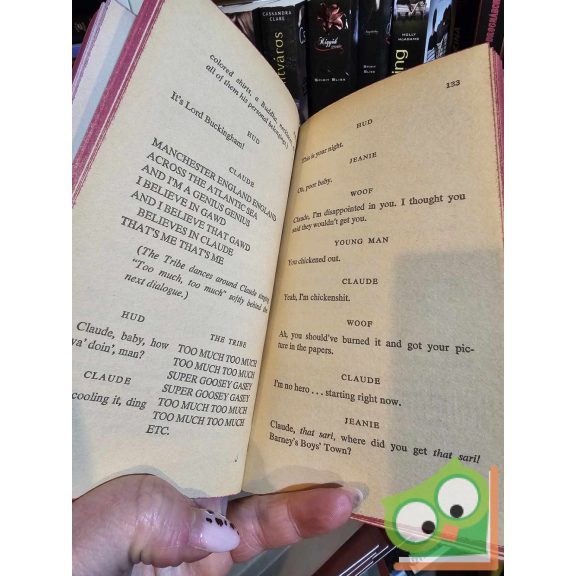 CASSANDRA
CLARE
HOLLY
McADAMS
SPIRIT BLISS
SPIRIT BLISS
colored shirts, a Buddha,
all of them his personal belongings.)
HUD
It's Lord Buckingham!
CLAUDE
MANCHESTER ENGLAND ENGLAND
ACROSS THE ATLANTIC SEA
AND I'M A GENIUS GENIUS
I BELIEVE IN GAWD
AND I BELIEVE THAT GAWD
BELIEVES IN CLAUDE
THAT'S ME THAT'S ME
(The Tribe dances around Claude singing
"Too much, too much" softly behind the
next dialogue.)
HUD
Claude, baby, how
wa' doin', man?
CLAUDE
cooling it, ding
THE TRIBE
TOO MUCH TOO MUCH
TOO MUCH TOO MUCH
SUPER GOOSEY GASEY
SUPER GOOSEY GASEY
TOO MUCH TOO MUCH
TOO MUCH TOO MUCH
ETC.
133
HUD
This is your night.
JEANIE
Oh, poor baby.
WOOF
Claude, I'm disappointed in you. I thought you
said they wouldn't get you.
YOUNG MAN
You chickened out.
CLAUDE
Yeah, I'm chickenshit.
WOOF
Ah, you should've burned it and got your pic-
ture in the papers.
CLAUDE
I'm no hero . . . starting right now.
JEANIE
Claude, that sari, where did you get that sari!
Barney's Boys' Town?